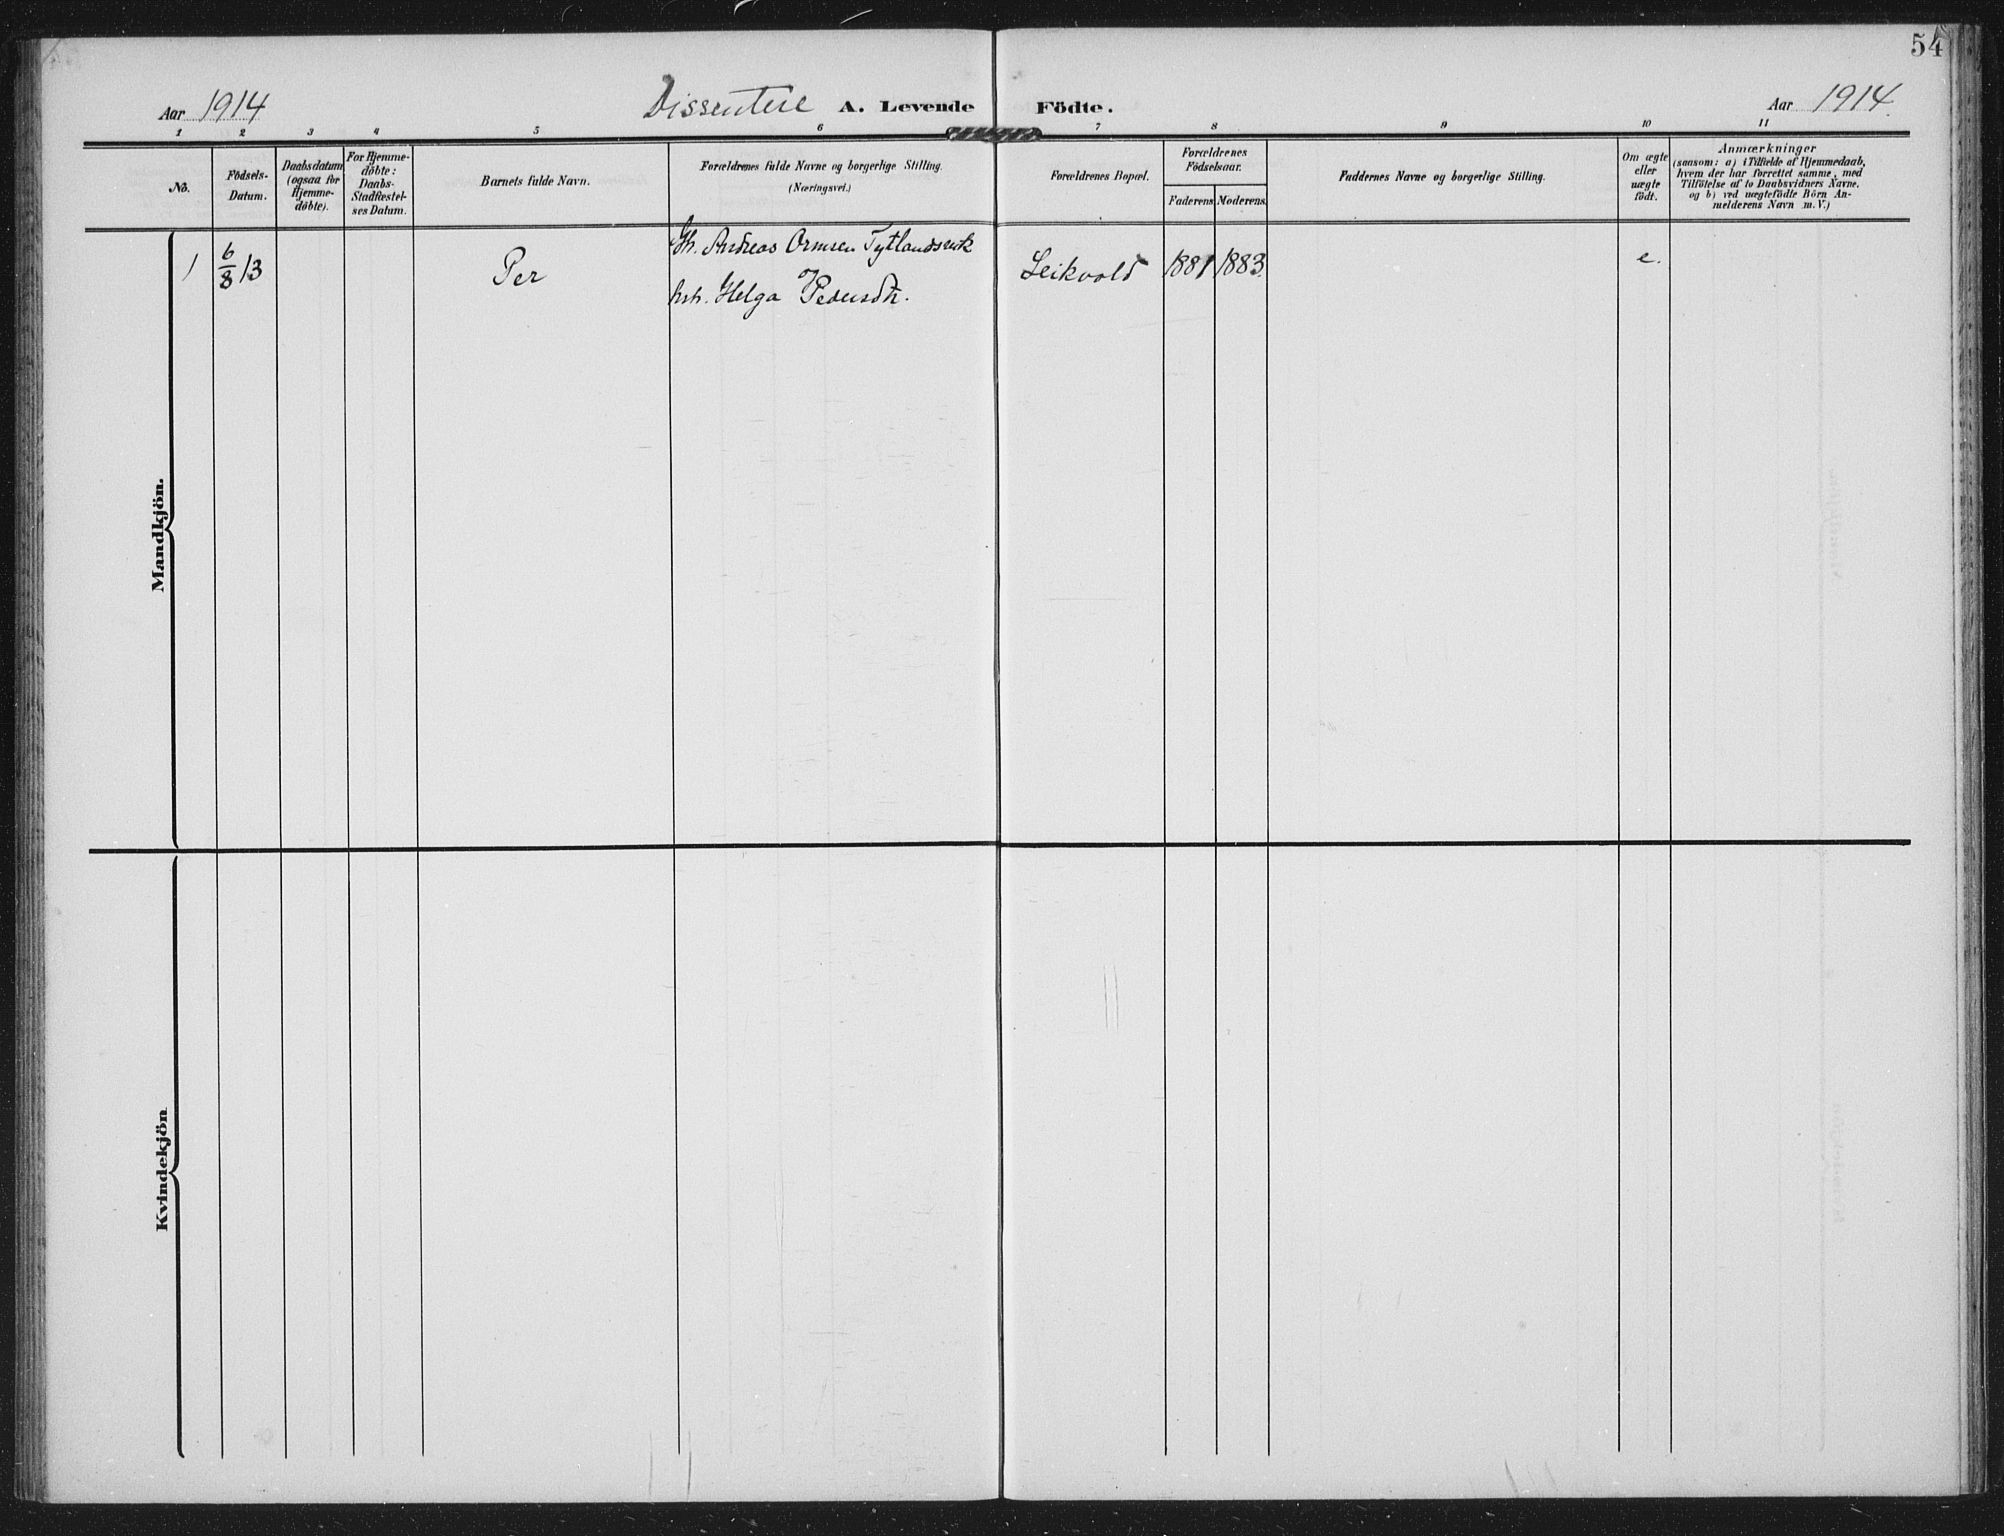 54
Aar 1914
Dissentere A. Levende Födte.
Aar 1914.
1 2 3 4 5 6 7 8 9 10 11
No.
Födsels-
Datum.
Daabsdatum
(ogsaa for
Hjemme-
döbte).
For Hjemme-
döbte:
Daabs-
Stadfæstel-
ses Datum.
Barnets fulde Navn.
Forældrenes fulde Navne og borgerlige Stilling.
(Næringsvei.)
Forældrenes Bopæl.
Forældrenes
Födselsaar.
Faderens Moderens.
Faddernes Navne og borgerlige Stilling.
Om ægte
eller
uægte
födt.
Anmærkninger
(saasom: a) i Tilfælde af Hjemmedaab,
hvem der har forrettet samme, med
Tilföielse af to Daabsvidners Navne,
og b) ved uægtefödte Börn An-
melderens Navn m. V.)
Mandkjön.
1
6/8 13
Per
Andreas Ormsen
hst. Helga Pedersdtr.
Leikvold
1881 1883.
e.
Kvindekjön